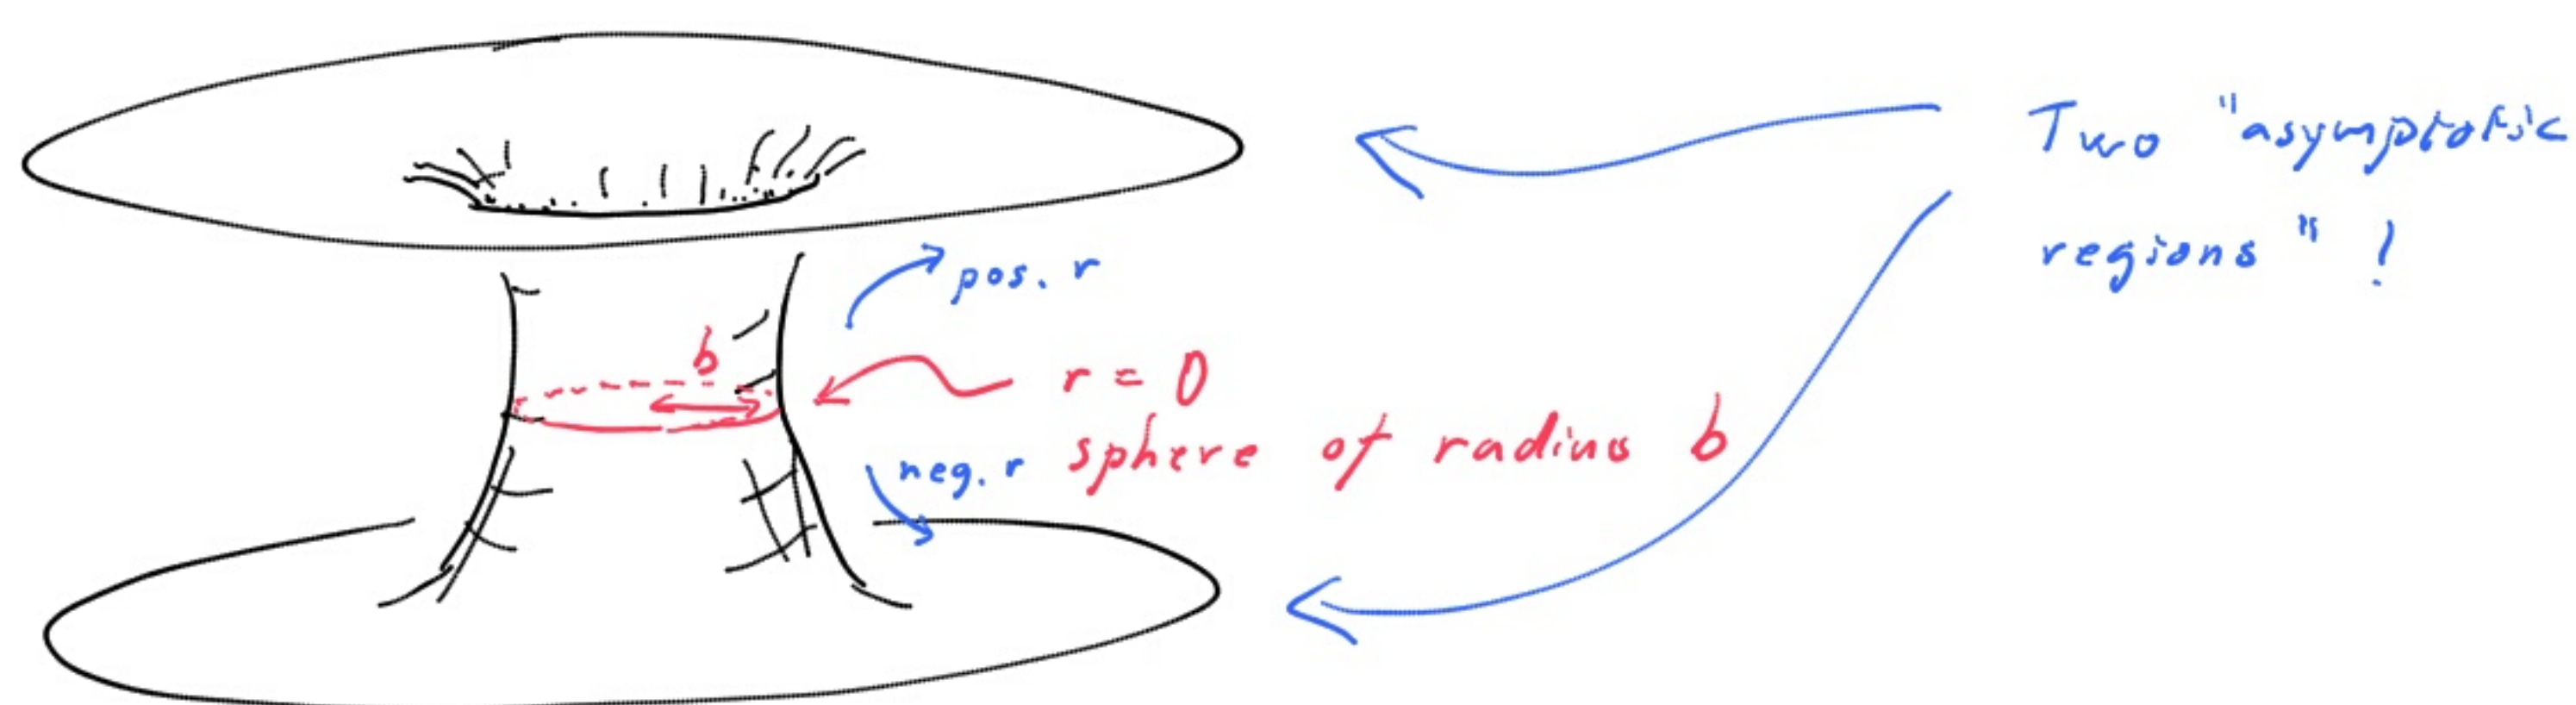 Two "asymptotic
regions" !
pos. r
b
r = 0
sphere of radius b
neg. r